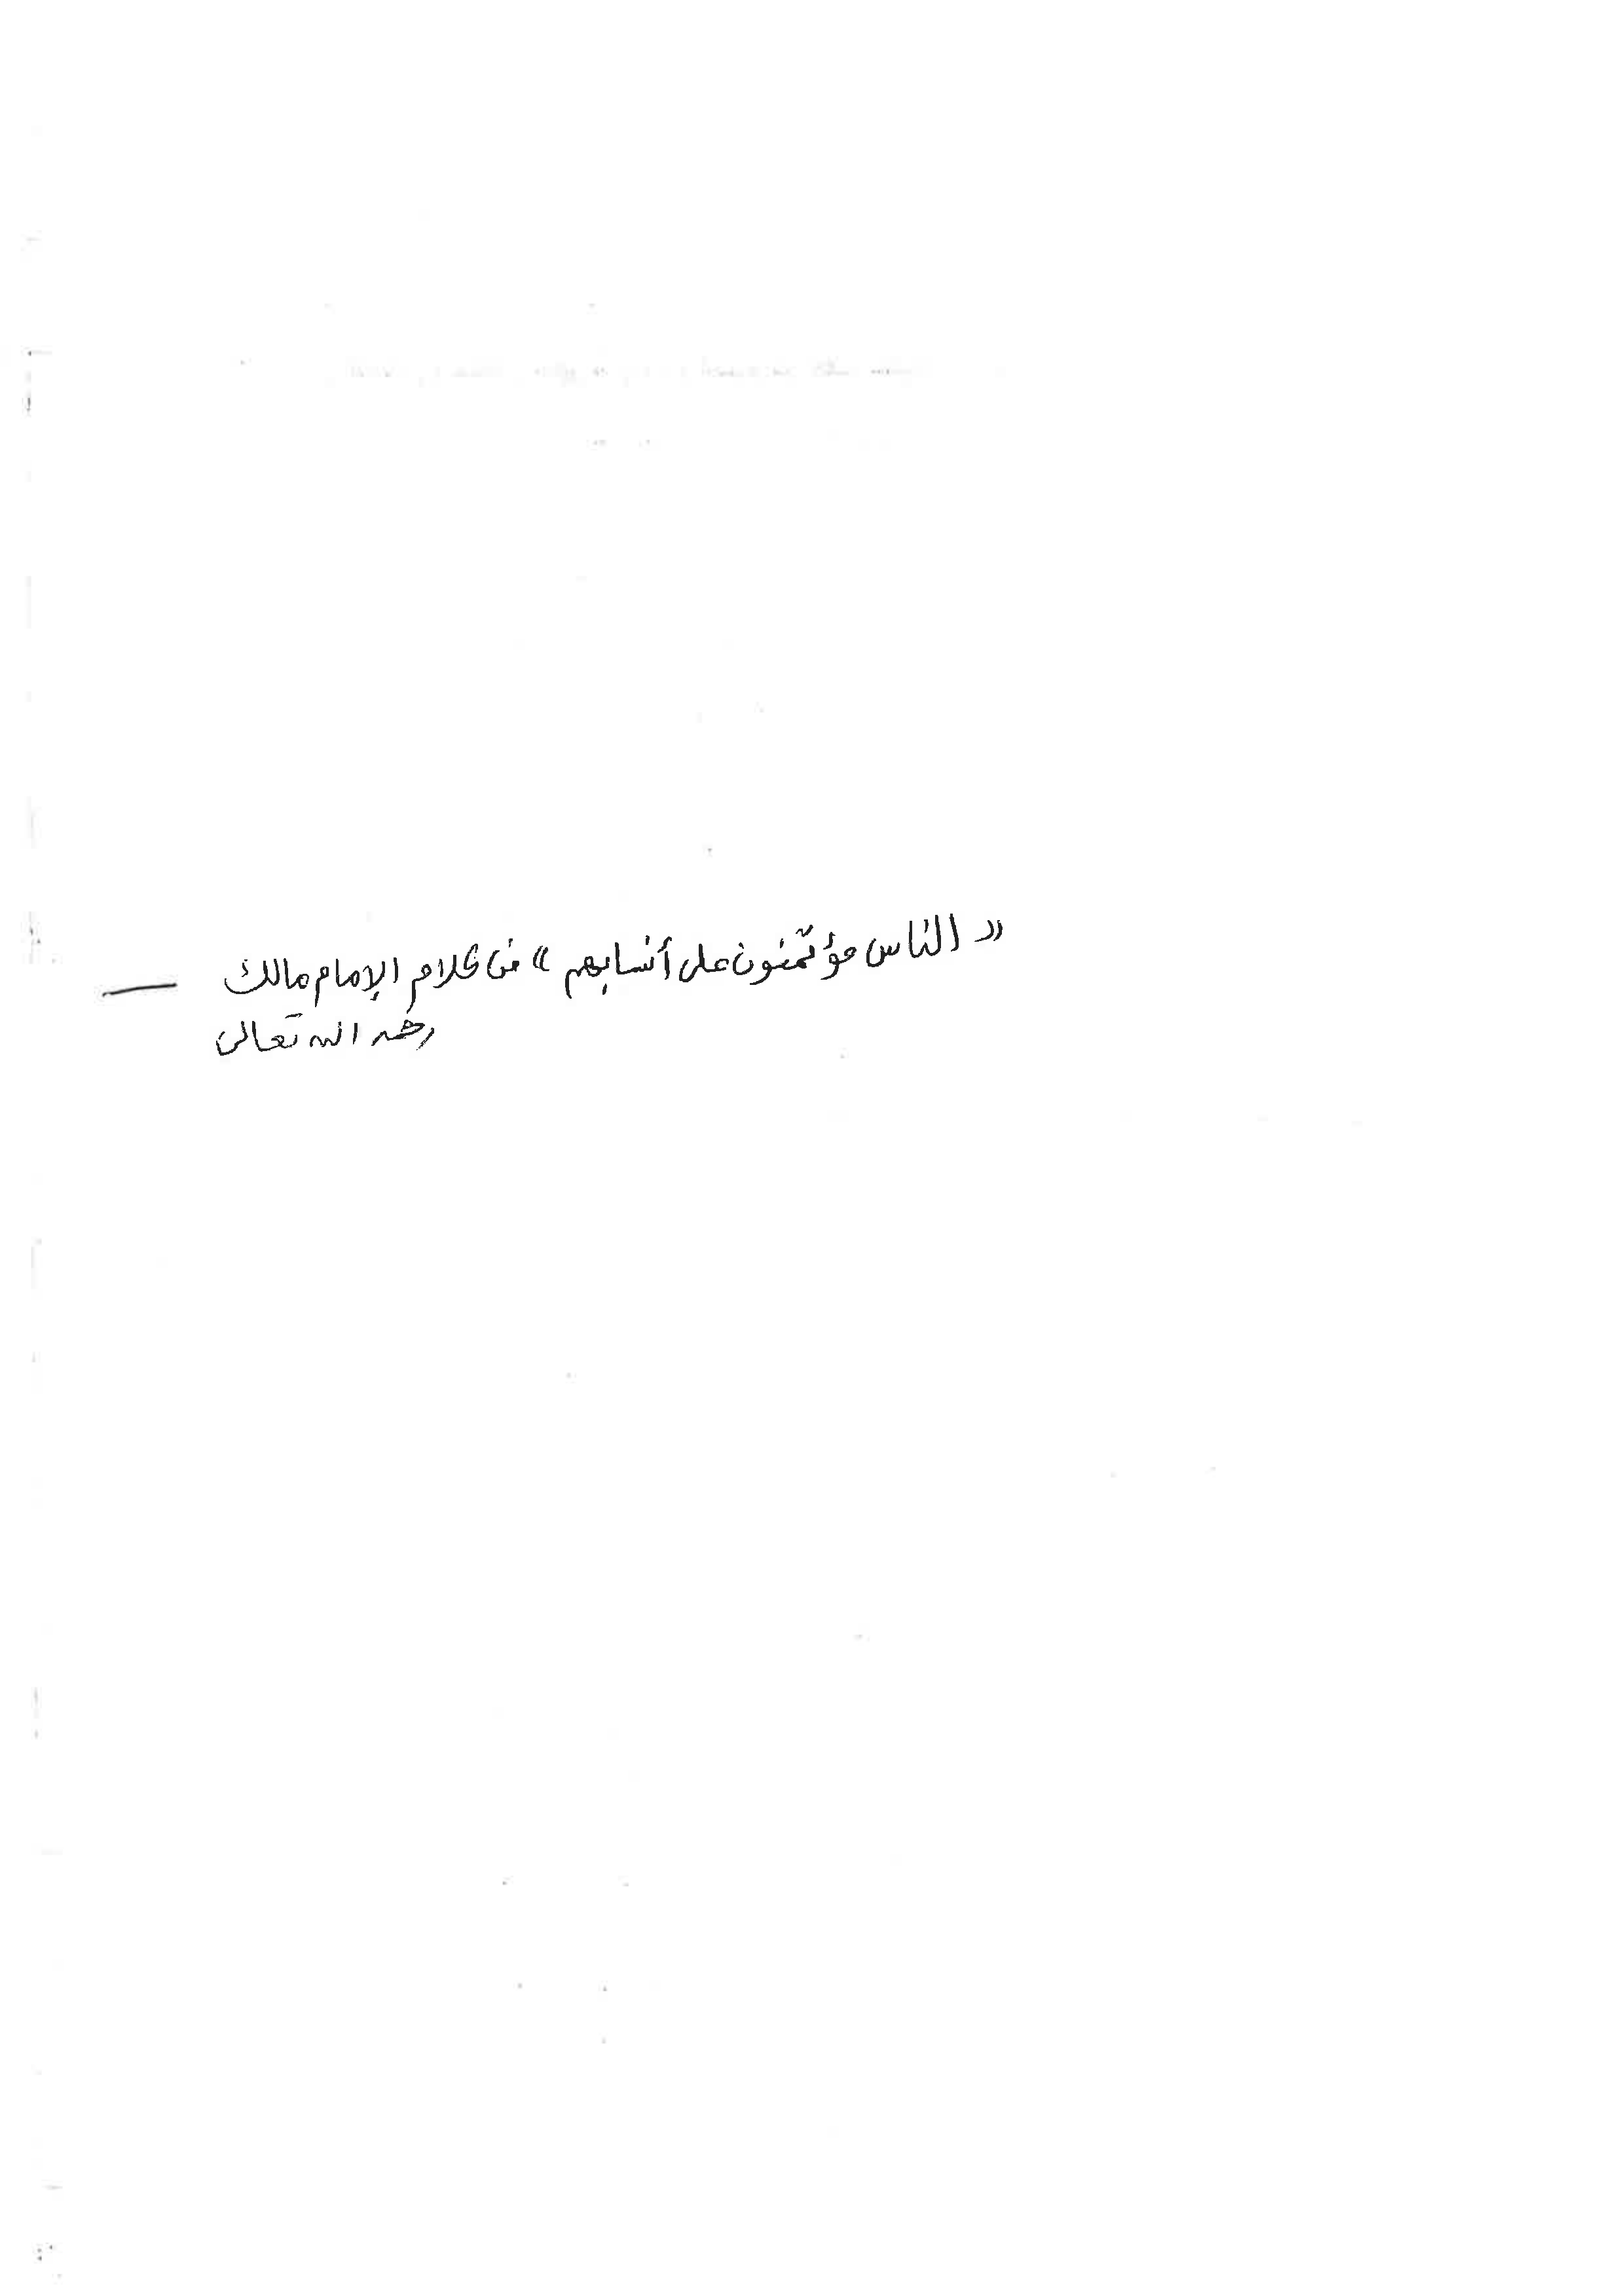 « الناس مؤتمنون على أنسابهم » من كلام الإمام مالك
رحمه الله تعالى